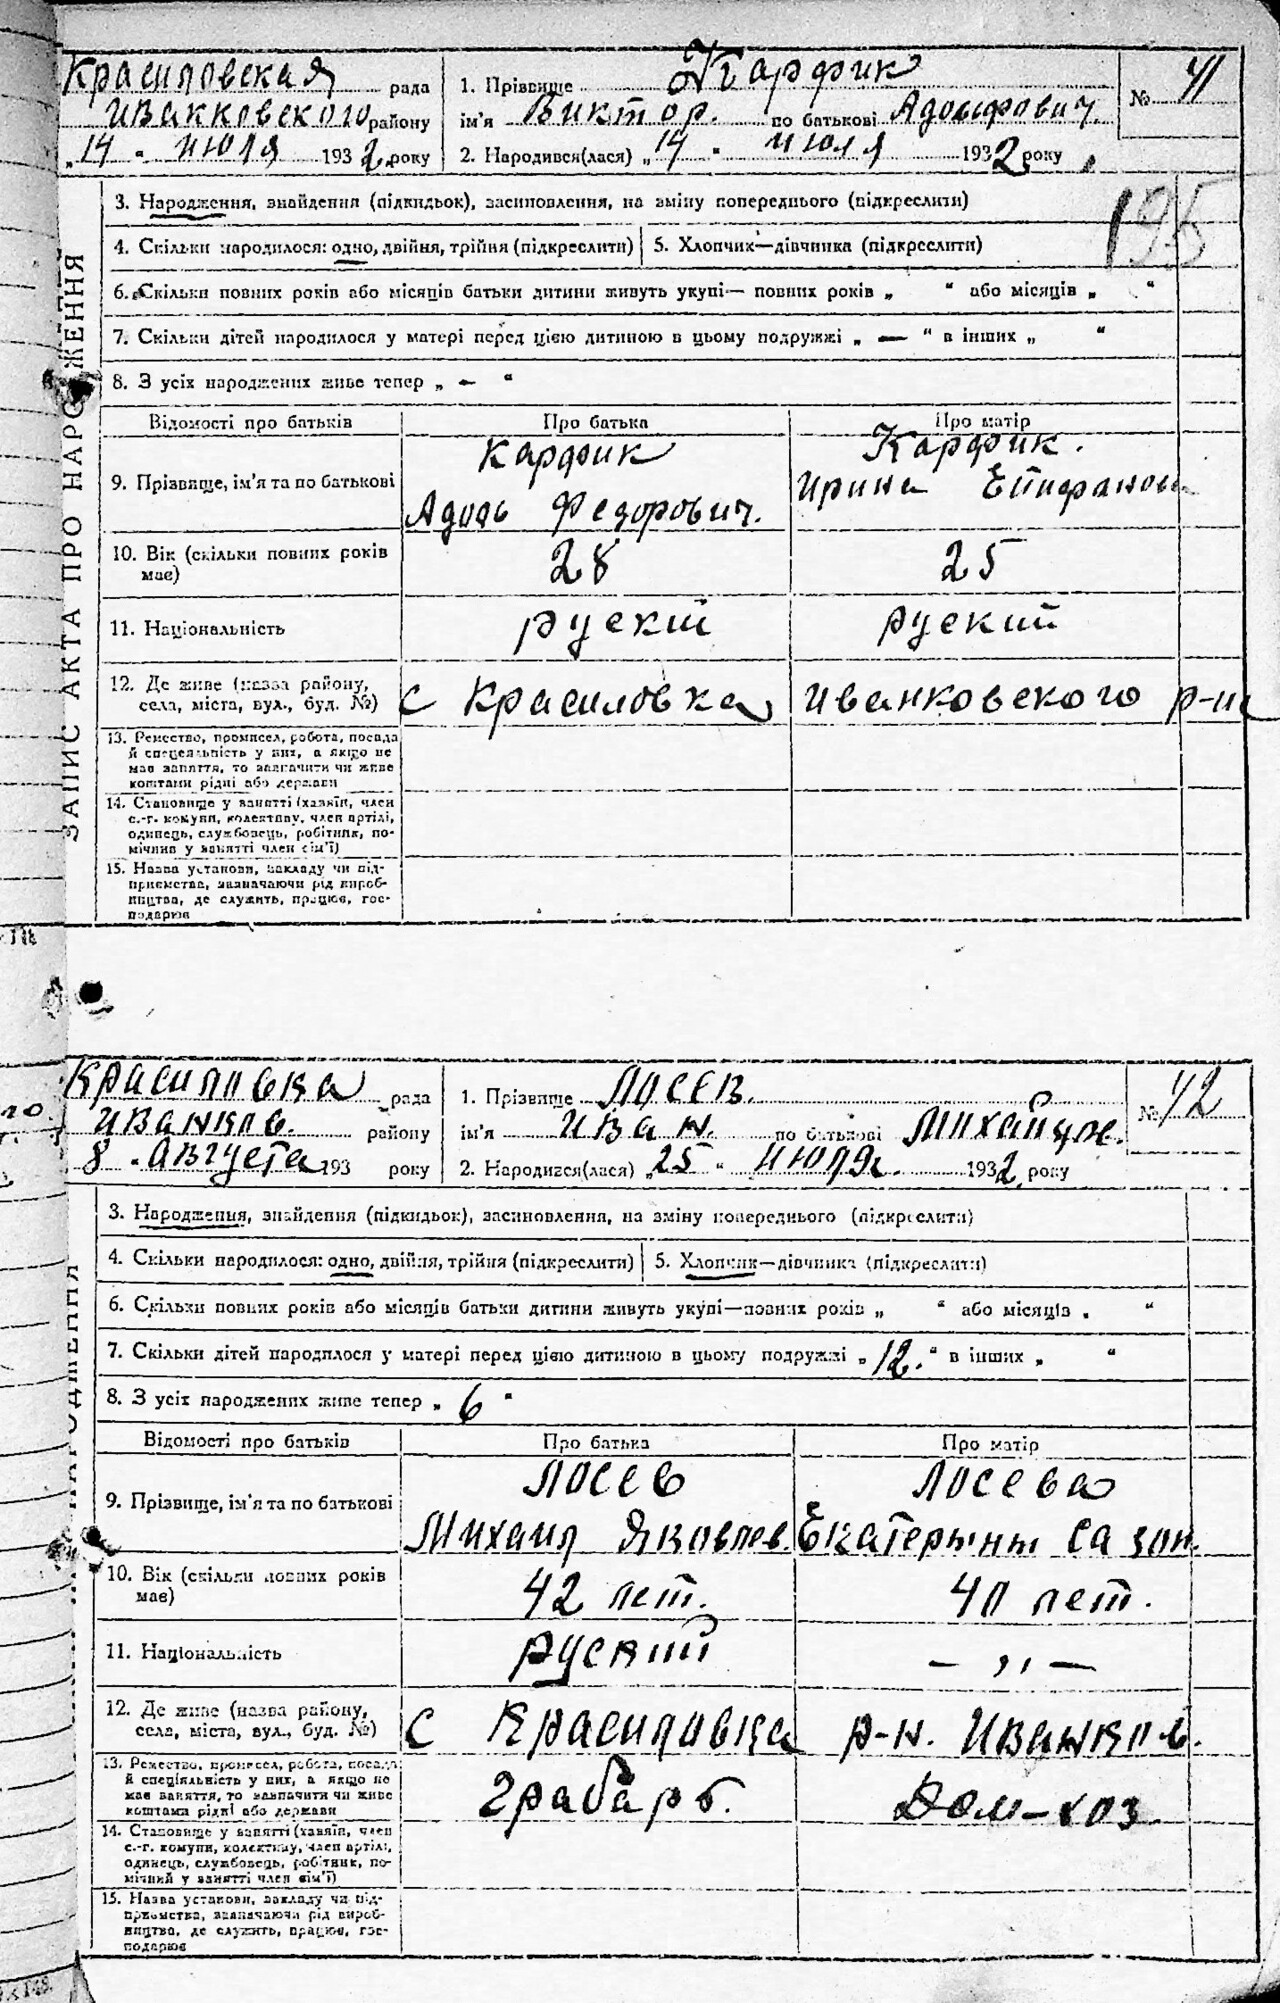 Красиловская рада
Иванковского району
„14 " июля 1932 року
1. Прізвище Карфик
ім'я Виктор. по батькові Адольфович.
2. Народився(лася) „14 " июля 1932 року
№ 41
195
ЗАПИС АКТА ПРО НАРОДЖЕННЯ
3. Народження, знайдення (підкидьок), засиновлення, на зміну попереднього (підкреслити)
4. Скільки народилося: одно, двійня, трійня (підкреслити) 5. Хлопчик—дівчинка (підкреслити)
6. Скільки повних років або місяців батьки дитини живуть укупі— повних років „ " або місяців „ "
7. Скільки дітей народилося у матері перед цією дитиною в цьому подружжі „ — " в інших „ "
8. З усіх народжених живе тепер „ – "
Відомості про батьків Про батька Про матір
9. Прізвище, ім'я та по батькові
Карфик
Адоль Федорович.
Карфик.
Ирина Епифанов
10. Вік (скільки повних років має) 28 25
11. Національність руский руский
12. Де живе (назва району, села, міста, вул., буд. №) с Красиловка Иванковского р-на
13. Ремество, промисел, робота, посада
й спеціяльність у них, а якщо не
має заняття, то зазначити чи живе
коштами рідні або держави
14. Становище у занятті (хазяїн, член
с.-г. комуни, колективу, член артілі,
одинець, службовець, робітник, по-
мічник у занятті член сім'ї)
15. Назва установи, закладу чи під-
приємства, зазначаючи рід вироб-
ництва, де служить, працює, гос-
подарює
Красиловка рада
Иванков. району
8 . Августа 193 року
1. Прізвище Лосев.
ім'я Иван. по батькові
2. Народився(лася) „25 " июля. 1932 року
№ 42
3. Народження, знайдення (підкидьок), засиновлення, на зміну попереднього (підкреслити)
4. Скільки народилося: одно, двійня, трійня (підкреслити) 5. Хлопчик—дівчинка (підкреслити)
6. Скільки повних років або місяців батьки дитини живуть укупі—повних років „ " або місяців „ "
7. Скільки дітей народилося у матері перед цією дитиною в цьому подружжі „12." в інших „ "
8. З усіх народжених живе тепер „ 6 "
Відомості про батьків Про батька Про матір
9. Прізвище, ім'я та по батькові
Лосев
Михаил Яковлев.
Лосева
Екатерины Сазон.
10. Вік (скільки повних років має) 42 лет. 40 лет.
11. Національність руский – ,, –
12. Де живе (назва району, села, міста, вул., буд. №) с Красиловка р-н. Иванков.
13. Ремество, промисел, робота, посада
й спеціяльність у них, а якщо не
має заняття, то зазначити чи живе
коштами рідні або держави
грабарь. Дом-хоз
14. Становище у занятті (хазяїн, член
с.-г. комуни, колективу, член артілі,
одинець, службовець, робітник, по-
мічний у занятті член сім'ї)
15. Назва установи, закладу чи під-
приємства, зазначаючи рід вироб-
ництва, де служить, працює, гос-
подарює